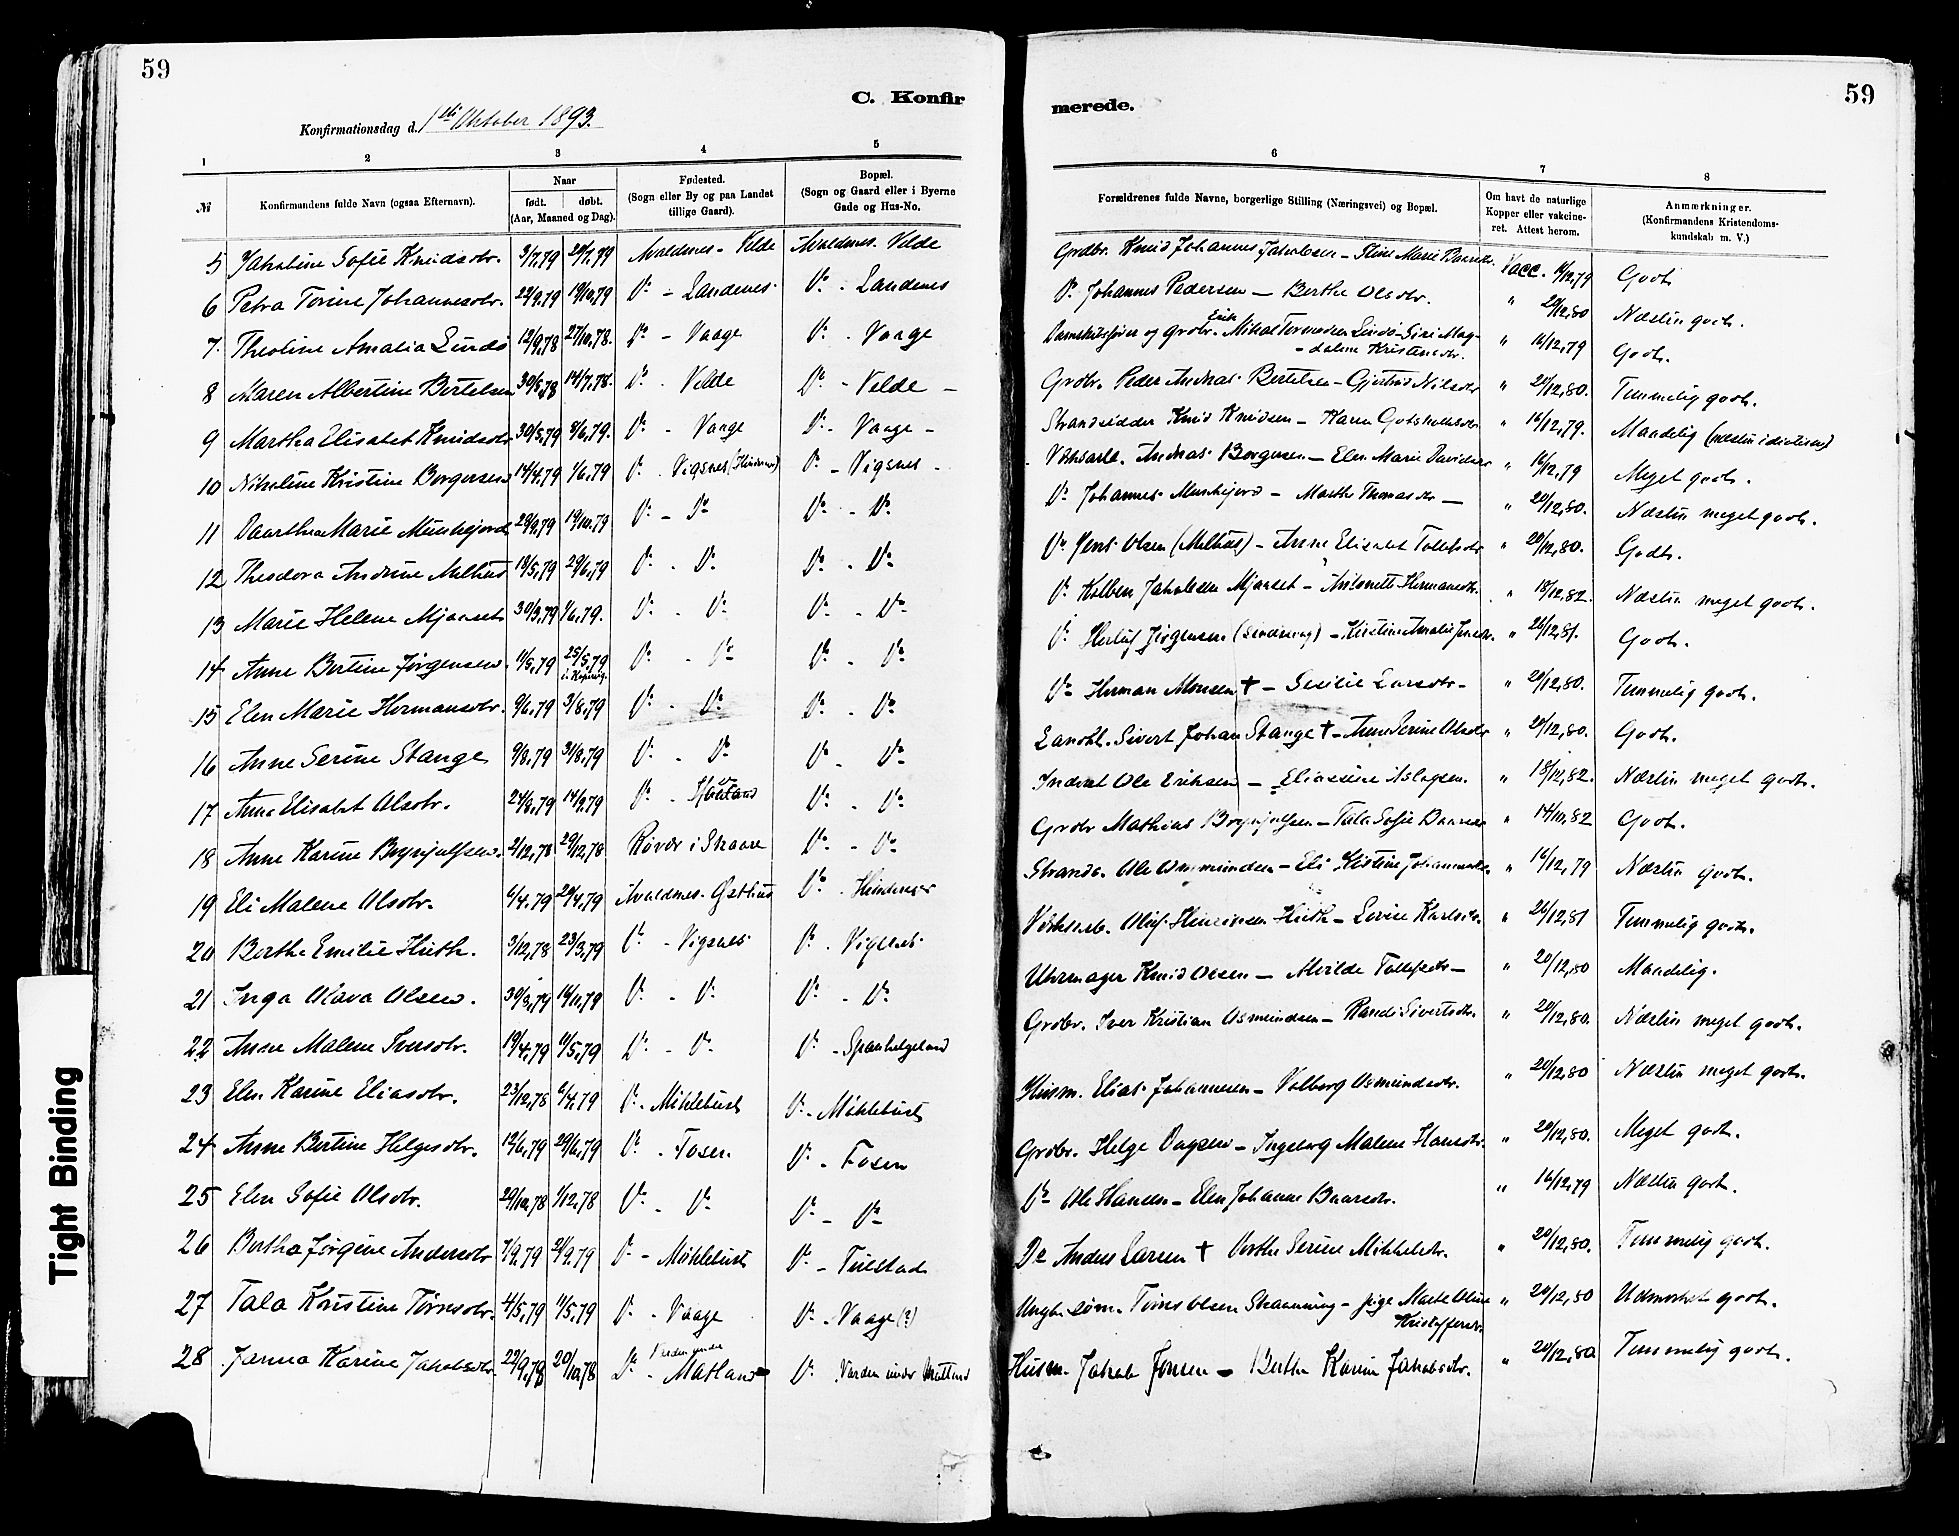 59
C. Konfir
merede.
59
Konfirmationsdag d. 1ste Oktober 1893.
1 2 3 4 5 6 7 8
№ Konfirmandens fulde Navn (ogsaa Efternavn). Naar født. døbt. (Aar, Maaned og Dag). Fødested. (Sogn eller By og paa Landet tillige Gaard). Bopæl. (Sogn og Gaard eller i Byerne Gade og Hus-No. Forældrenes fulde Navne, borgerlige Stilling (Næringsvei) og Bopæl. Om havt de naturlige Kopper eller vakcineret. Attest herom. Anmærkninger. (Konfirmandens Kristendomskundskab m. V.)
5 Jakobine Sofie Knudsdtr. 3/7.79 Avaldsnes - Velde Avaldsnes. Velde Grdbr. Knud Johannes Jakobsen - Stine Marie Vacc. 16/12.79 Godt
6 Petra Torine Johannesdtr. 22/9.79 19/10.79 Do - Landenes Do - Landenes Do Johannes Pedersen - Berthe Olsdtr. " 20/12.80 Næsten godt.
7. Theoline Amalia Lindø 12/9.78 27/10.78. Do - Vaage Do - Vaage og Grdbr. Mikal Tormodsen Lindø - Siri Mag-
dalene Kristensdtr. " 16/12.79 Godt.
8 Maren Albertine Bertelsen 30/5.78 14/7.78. Do - Velde Do - Velde - Grdbr. Peder Andreas Bertelsen - Gjertrud Nilsdtr " 20/12.80. Temmelig godt.
9 Martha Elisabet Knudsdtr. 30/5.79 8/6.79. Do - Vaage Do - Vaage - Strandsidder Knud Knudsen - Karen " 16/12.79. Maadelig (næsten idiotisk)
10 Nikoline Kristine Borgersen 14/4.79 1/6.79 Do - Vigsnes Do - Vigsnes - Verksarb. Andreas Borgersen - Elen Marie " 16/12.79 Meget godt.
11 Marie Munkejord 29/9.79 19/10.79 Do - Do Do - Do Do Johannes Munkejord - Marthe Thomasdtr - " 20/12.80. Næsten meget godt.
12 Theodora Andrine Melhus 18/5.79 29/6.79 Do - Do Do - Do Do Jens Olsen (Melhus) - Anne Elisabet " 20/12.80. Godt.
13 Marie Helene Mjaaset 30/3.79 1/6.79. Do - Do Do - Do Do Kolben Jakobsen Mjaaset - Hermansdtr. " 18/12.82. Næsten meget godt.
14 Anne Bertine Jørgensen. 11/5.79 25/5.79 Do - Do Do - Do Do Jørgensen - Kristine Amalie " 26/12.81. Godt.
15 Elen Marie Hermansdtr. 9/6.79 3/8.79 Do - Do Do - Do Do Herman Monsen † - Larsdtr - " 20/12.80. Temmelig godt.
16 Anne Serine Stange 9/8.79 31/8.79 Do - Do Do - Do Landh. Sivert Johan Stange † - Anne Serine Olsdtr " 20/12.80. Godt.
17 Anne Elisabet Olsdtr. 24/8.79 14/9.79 Do - Do - Do Inderst Ole Eriksen - Aslagsen. " 18/12.82. Næsten meget godt.
18 Anne Karine Brynjulfsen. 2/12.78 29/12.78 Røvær i Skaare Do - Do Grdbr Mathias Brynjulfsen - Tala Sofie " 14/10.82 Godt.
19 Eli Malene Olsdtr. 6/4.79 20/4.79 Avaldsnes. Østhus Do - Strands. Ole Osmundsen - Eli Kristine Johannesdtr. " 16/12.79 Næsten godt.
20 Berthe Emilie Huth. 3/12.78 23/3.79 Do - Vigsnes Do - Vigsnes Verksarb. Oluf Henriksen Huth - Lovise Karlsdtr. " 26/12.81 Temmelig godt.
21 Inga Olava Olsen. 30/3.79 16/11.79 Do - Do Do - Do Uhrmager Knud Olsen - - " 20/12.80 Maadelig.
22 Anne Malene Iversdtr. 19/4.79 11/5.79 Do - Do Do - Spanhelgeland Grdbr. Iver Kristian Osmundsen - Randi Sivertsdtr. " 20/12.80. Næsten meget godt.
23 Elen Karine Eliasdtr. 23/12.78 6/4.79 Do - Møklebust Do - Møklebust Husm. Elias Johannesen - Valborg Osmundsdtr. " 20/12.80 Næsten meget godt.
24 Anne Bertine Helgesdtr. 12/6.79 29/6.79 Do - Fosen Do - Fosen Grdbr. Helge - Ingeborg Malene Hansdtr. " 20/12.80. Meget godt.
25 Elen Sofie Olsdtr. 29/10.78 1/12.78 Do - Do Do - Do Do Ole Hansen - Elen Johanne Baarsdtr. " 16/12.79 Næsten godt.
26 Bertha Jørgine Andersdtr 7/9.79 21/9.79 Do - Møklebust Do - Do Anders Larsen † Serine Mikkelsdtr. " 20/12.80. Temmelig godt.
27 Tala Kristine Tørresdtr. 4/5.79 11/5.79 Do - Vaage Do - Vaage (?) Ungk. søm. Tørres Olsen - pige Marte Oline
Kristoffersdtr. " 20/12.80 Udmerket godt.
28 Karine Jakobsdtr. 22/9.78 20/10.78 Do - Varden under Matland Do Varden under Matland Husm. Jakob Jonsen - Berthe Karine Jakobsdtr. " 20/12.80 Temmelig godt.
Tight Binding